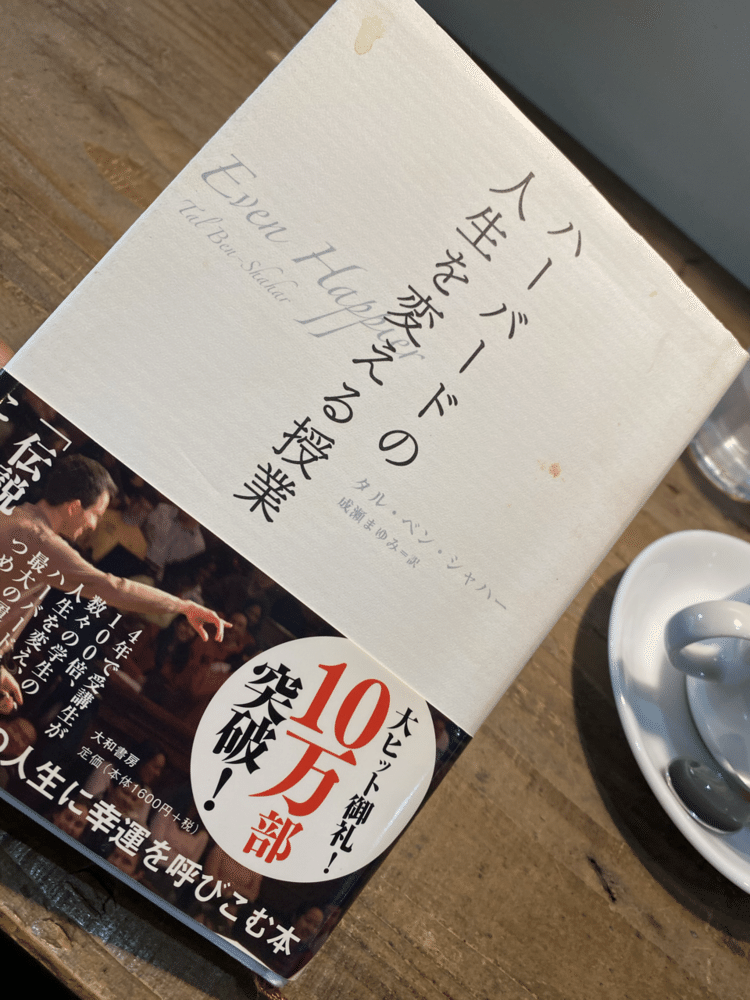 ハーバードの
人生を変える授業
Even Happier
Tal Ben-Shahar
タル・ベン・シャハー
成瀬まゆみ=訳
「伝説
と
14年で受講生が
数100倍、
数々の学生の
人生を変え、
ハーバード
最大の
大ヒット御礼!
10万部
突破!
大和書房
定価(本体1600円+税)
の人生に幸運を呼びこむ本